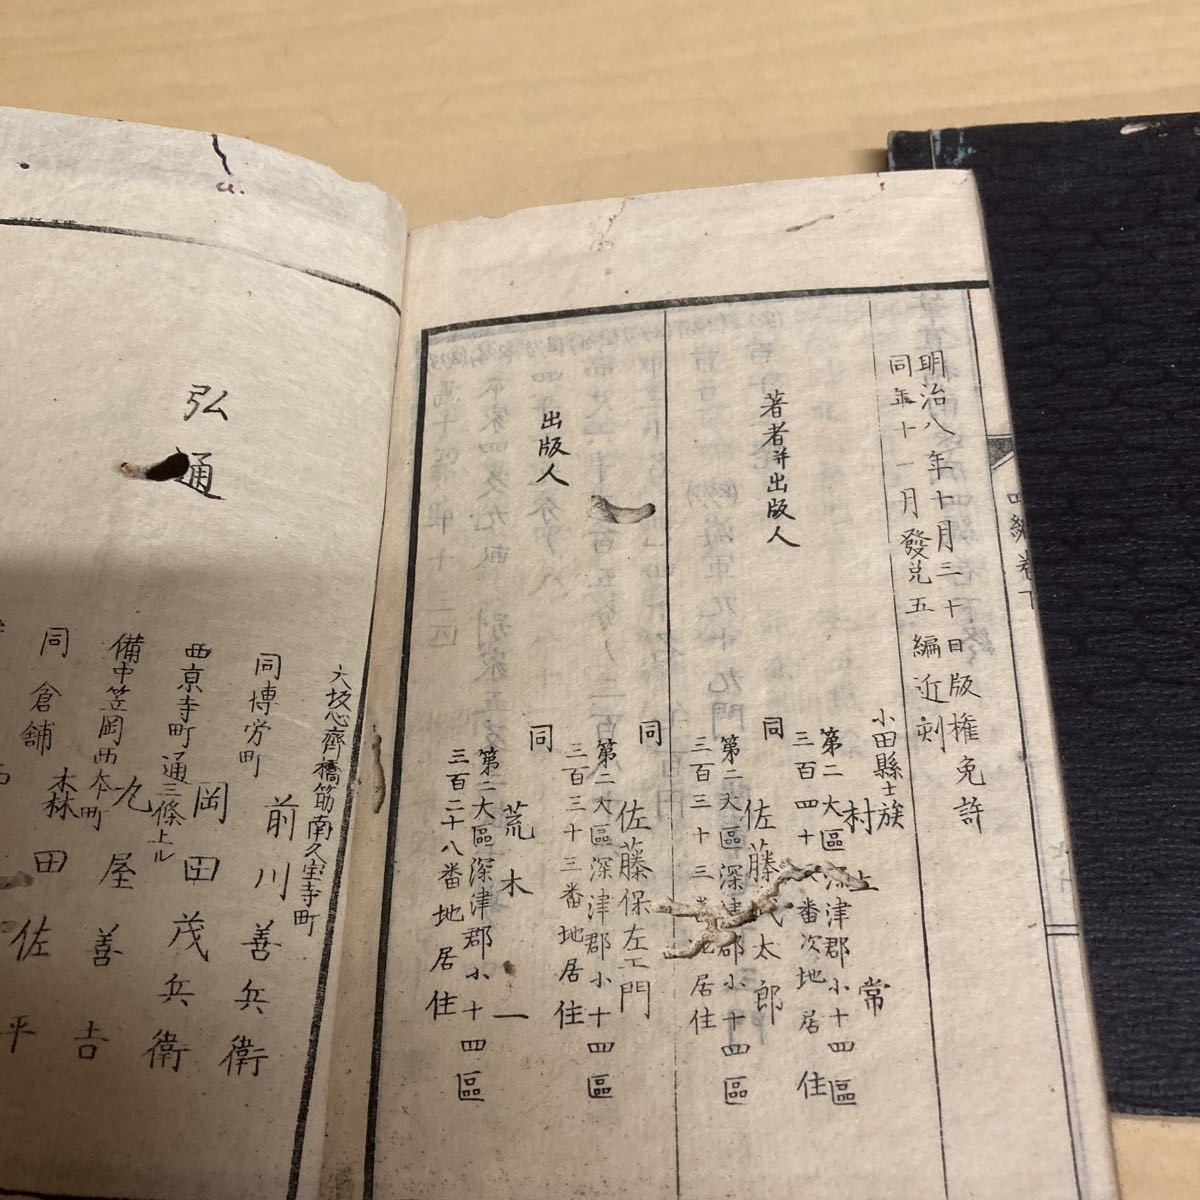 明治八年十月三十日版權免許
同年十一月發兌五編近刻
著者并出版人
小田縣士族
村上常
第二大區深津郡小十四區
三百四十
番次地居住
同
佐藤
太郎
第二大區深津郡小十四區
三百三十三番地居住
出版人
同
佐藤保左エ門
第二大區深津郡小十四區
三百三十三番地居住
同
荒木一
第二大區深津郡小十四區
三百二十八番地居住
四編卷下
弘通
大坂心齊橋筋南久宝寺町
同博労町
前川善兵衛
西京寺町通三條上ル
岡田茂兵衛
備中笠岡西本町
九屋善吉
同倉舗
森田佐平